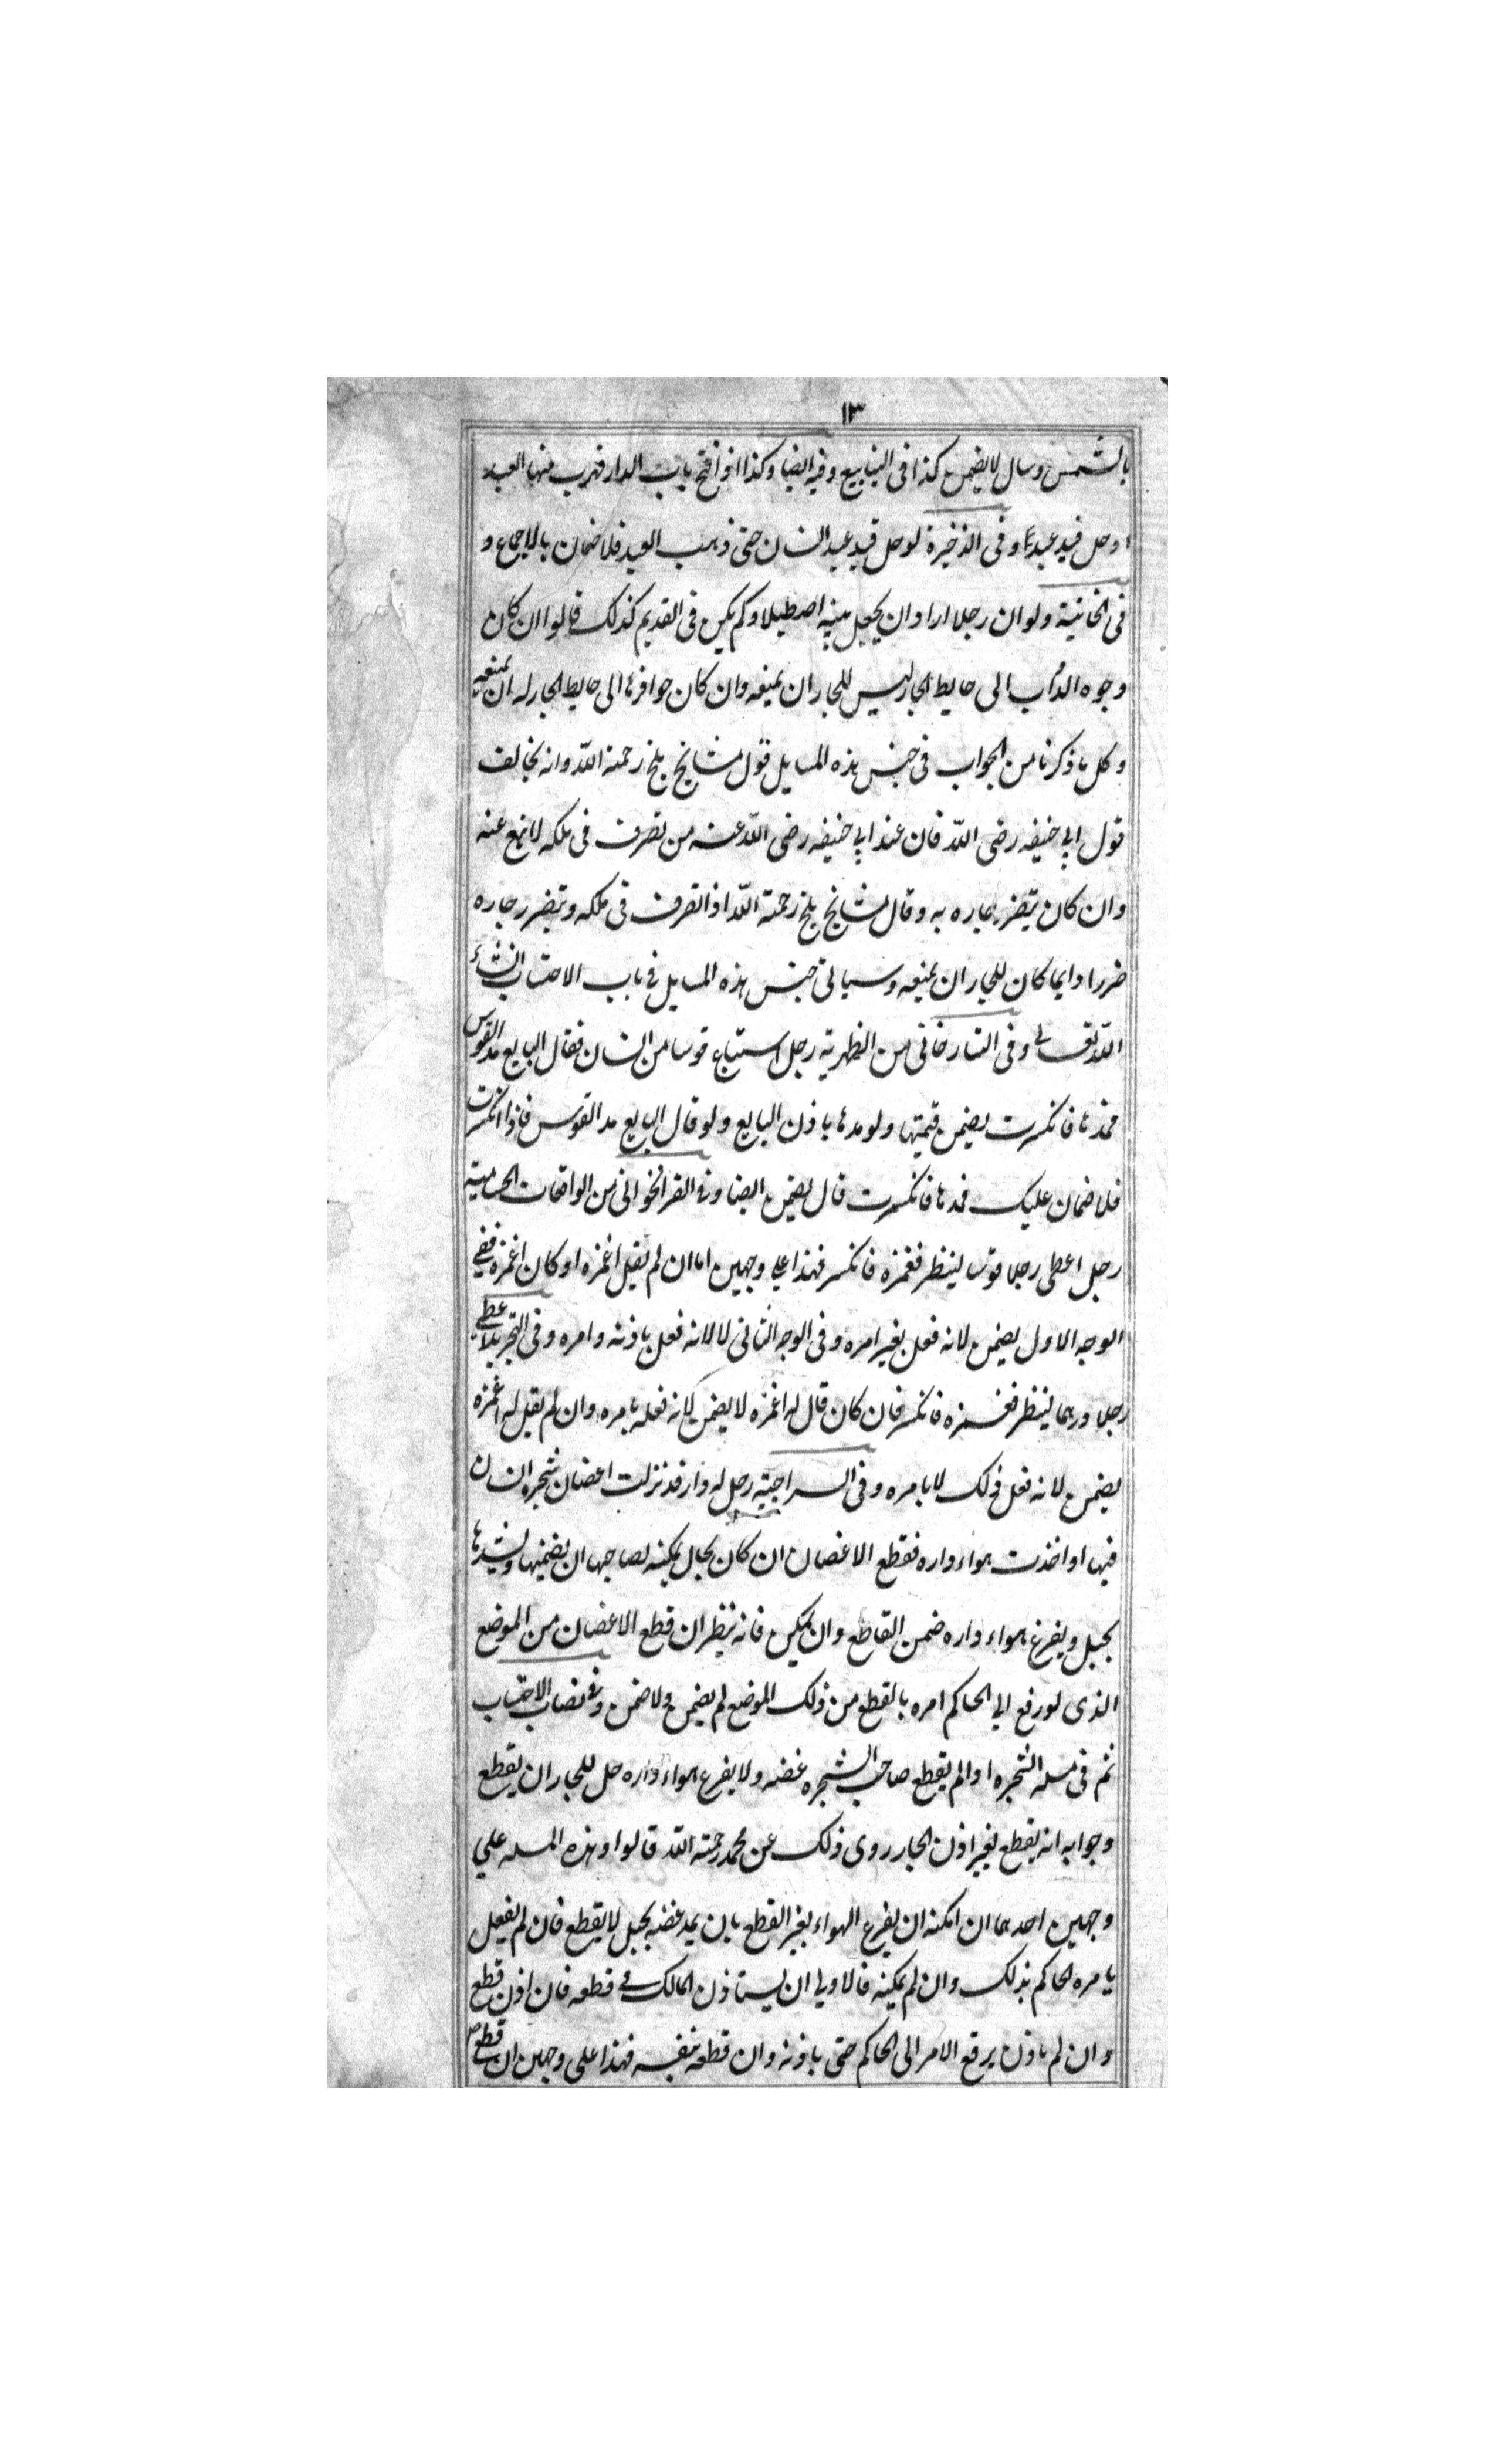 ١٣
بالشمس وسال لا يضمن كذا فى الينابيع وفيه ايضا وكذا اذا فتح باب الدار فهرب منها العبد
او حل قيد عبد وفى الذخيرة لو حل قيد عبد انسان حتى ذهب العبد فلا ضمان بالاجماع و
فى الخانية ولو ان رجلا اراد ان يجعل بيته اصطبلا ولم يكن فى القديم كذلك قالوا ان كان
وجوه الدواب الى حايط الجار ليس للجار ان يمنعه وان كان حوافرها الى حايط الجار له ان يمنعه
وكل ما ذكرنا من الجواب فى جنس هذه المسايل قول مشايخ بلخ رحمة الله وانه يخالف
قول ابى حنيفه رضى الله فان عند ابى حنيفه رضى الله عنه من تصرف فى ملكه لا يمنع عنه
وان كان يتضرر جاره به وقال مشايخ بلخ رحمة الله اذا تصرف فى ملكه ويتضرر جاره
ضررا دايما كان للجار ان يمنعه وسياتى جنس هذه المسايل فى باب الاحتساب انشاء
الله تعالى وفى التتارخانى من الظهرية رجل استباع قوسا من انسان فقال البايع مد القوس
فمدها فانكسرت يضمن قيمتها ولو مدها باذن البايع ولو قال البايع مد القوس فاذا انكسرت
فلا ضمان عليك فمدها فانكسرت قال يضمن ايضا وفى القراخوانى من الواقعات الحسامية
رجل اعطى رجلا قوسا لينظر فغمزه فانكسر فهذا على وجهين اما ان لم يقل اغمزه او كان اغمزه ففى
الوجه الاول يضمن لانه فعل بغير امره وفى الوجه الثانى لا لانه فعل باذنه وامره وفى التجريد اعطى
رجلا درهما لينظر فغمزه فانكسر فان كان قال له اغمزه لا يضمن لانه فعله بامره وان لم يقل له اغمزه
يضمن لانه فعل ذلك لا بامره وفى السراجية رجل له دار قد نزلت اغصان شجر انسان
فيها او اخذت هواء داره فقطع الاغصان ان كان بحال يمكنه لصاحبها ان يضمها ويشدها
بحبل ويفرغ هواء داره ضمن القاطع وان لم يكن فانه ينظر ان قطع الاغصان من الموضع
الذى لو رفع الى الحاكم امره بالقطع من ذلك الموضع لم يضمن ولا ضمن وفى نصاب الاحتساب
ثم فى مسله الشجره اذا لم يقطع صاحب الشجره غصنه ولا يفرغ هواء داره حل للجار ان يقطع
وجوابه انه يقطع بغير اذن الجار روى ذلك عن محمد رحمة الله قالوا وهذه المسله على
وجهين احدهما ان امكنه ان يفرغ الهواء بغير القطع بان يمد غصنه بحبل لا يقطع فان لم يفعل
يامره الحاكم بذلك وان لم يمكنه فالاولى ان يستاذن المالك فى قطعه فان اذن قطع
وان لم ياذن يرفع الامر الى الحاكم حتى ياذنه وان قطعه بنفسه فهذا على وجهين ان قطع